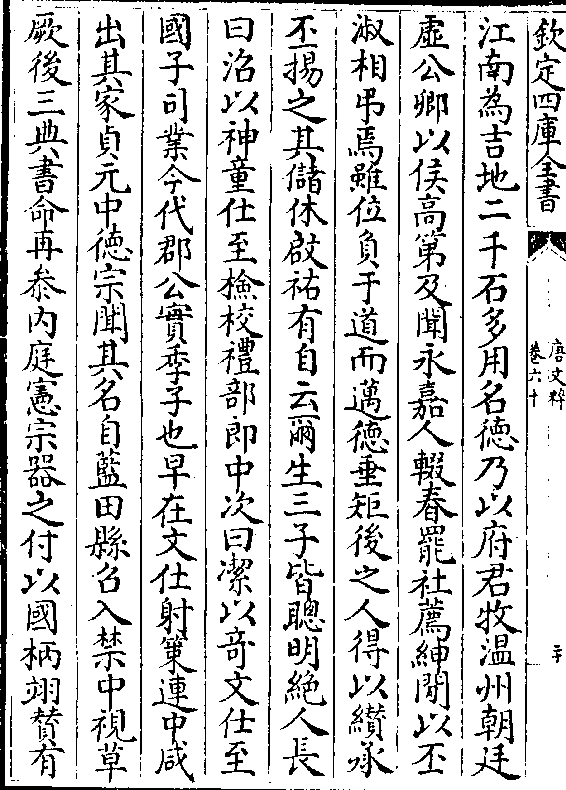 欽定四庫全書
唐文粹
卷六十
江南為吉地二千石多用名徳乃以府君牧温州朝廷
虚公卿以俟高第及聞永嘉人輟舂罷社薦紳間以丕
淑相弔焉雖位負于道而邁徳垂矩後之人得以纉承
丕揚之其儲休啟祐有自云爾生三子皆聰明絶人長
曰沼以神童仕至檢校禮部郎中次曰潔以竒文仕至
國子司業今代郡公實季子也早在文仕射䇿連中咸
出其家貞元中徳宗聞其名自藍田縣召入禁中視草
厥後三典書命再叅内庭憲宗器之付以國柄翊賛有